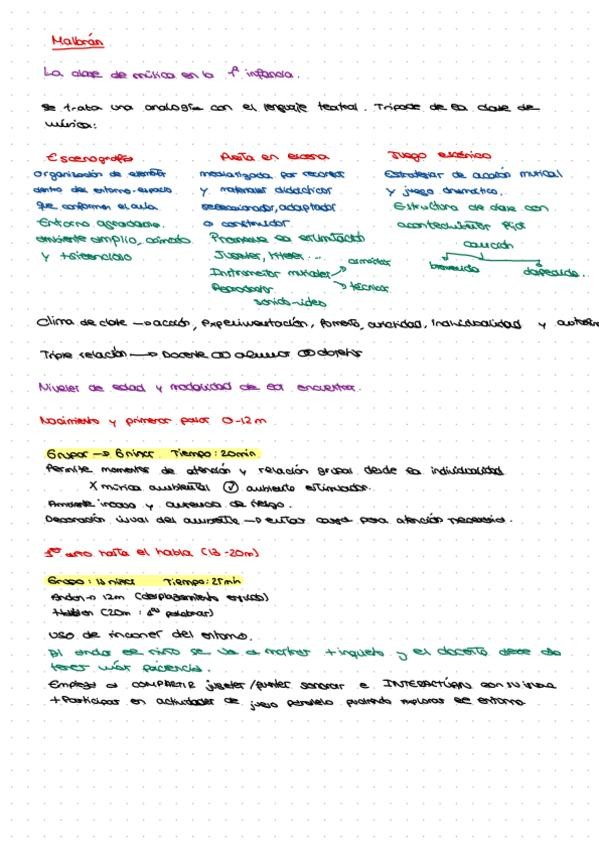 Malbrán
La clase de música en la 1ª infancia.
Se trata una analogía con el lenguaje teatral. Trípode de la clase de
música:
Escenografía
organización de
dentro del entorno-espacio
que conforman el aula.
Entorno agradable.
ambiente amplio, cómodo
y +silencioso
Puesta en escena
mediatizada por recursos
y materiales didácticos
seleccionador, adaptador
o constructor
Promueve la estimulación
Juguetes, títeres...
Instrumentos musicales
técnicos
Reproductor
sonido-video
Juego escénico
Estrategias de acción musical
y juego dramático.
Estructura de clase con
acontecimientos fijos
canción
bienvenida
despedida.
Clima de clase → acción, experimentación, fomento, curiosidad, individualidad y
Triple relación → Docente alumnos objetos
Niveles de edad y modalidad de la encuentros.
Nacimiento y primeros pasos 0-12m
Grupos → 6 niños Tiempo: 20min
Permite momentos de atención y relación grupal desde la individualidad
X música ambiental ✓ ambiente estimulador.
Ambiente inocuo y ausencia de riesgo.
Decoración visual del → evitar carga para atención necesaria.
1er año hasta el habla (13-20m)
Grupo: niños Tiempo: 25min
Andan → 12m (desplazamiento erguido)
Hablan (20m: 1as palabras)
Uso de rincones del entorno.
Al andar el niño se va a mostrar +inquieto y el docente debe de
tener más paciencia.
Empieza a COMPARTIR juguetes/fuentes sonoras e INTERACTÚAN con su
+Participar en actividades de juego paralelo pudiendo explorar el entorno